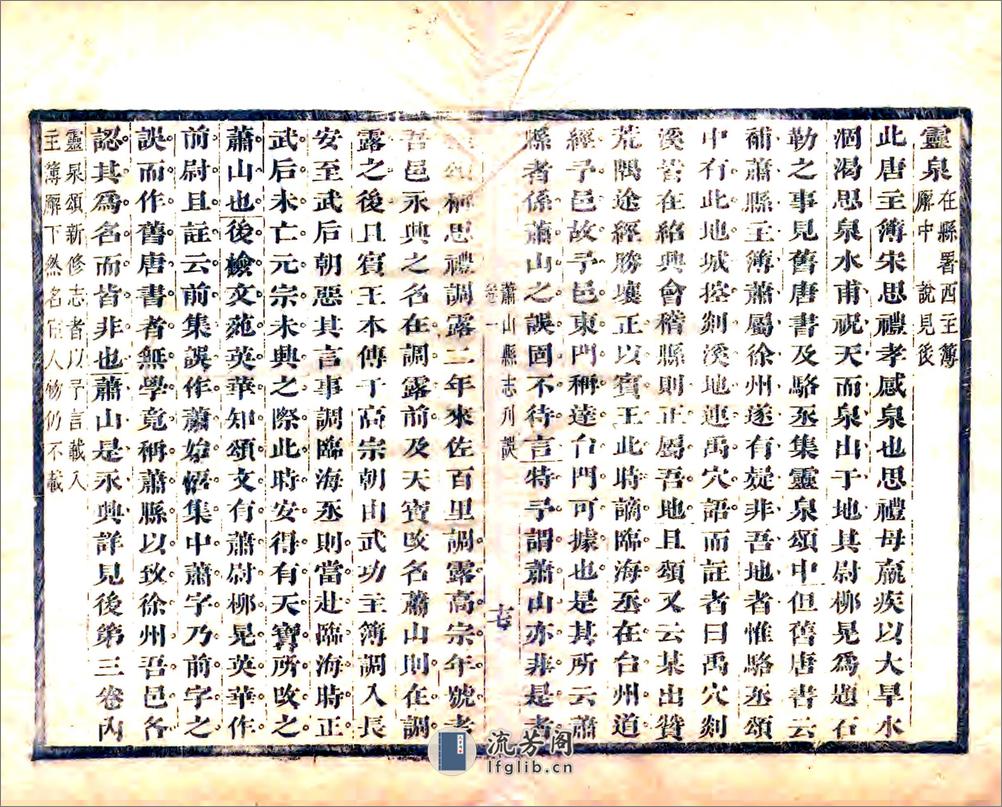 靈泉在縣署西主簿廨中說見後
此唐主簿宋思禮孝感泉也思禮母羸疾以大旱水
涸渴思泉水甫祝天而泉出于地其尉柳晃為題石
勒之事見舊唐書及駱丞集靈泉頌中但舊唐書云
補蕭縣主簿蕭屬徐州遂有疑非吾地者惟駱丞頌
中有此地城控剡溪地連禹穴語而註者曰禹穴剡
溪皆在紹興會稽縣則正屬吾地且頌又云某出贊
荒隅途經勝壤正以賓王此時謫臨海丞在台州道
經予邑故予邑東門稱達台門可據也是其所云蕭
縣者係蕭山之誤固不待言特予謂蕭山亦非是者
蕭山縣志刊誤
卷一
柳思禮調露二年來佐百里調露高宗年號考
吾邑永興之名在調露前及天寶改名蕭山則在調
露之後且賓王本傳于高宗朝由武功主簿調入長
安至武后朝惡其言事調臨海丞則當赴臨海時正
武后未亡元宗未興之際此時安得有天寶所改之
蕭山也後檢文苑英華知頌文有蕭尉柳晃英華作
前尉且註云前集誤作蕭始悟集中蕭字乃前字之
誤而作舊唐書者無學竟稱蕭縣以致徐州吾邑各
認其為名而皆非也蕭山是永興詳見後第三卷內
靈泉頌新修志者以予言載入
主簿廨下然名宦人物仍不載
流芳閣
lfglib.cn